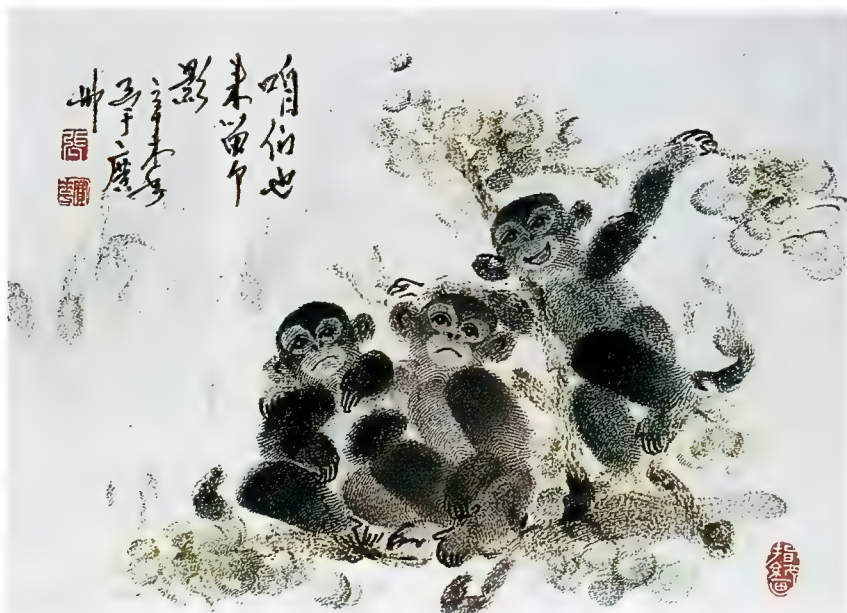 咱们也
来留个
影
辛未年
写于广
州